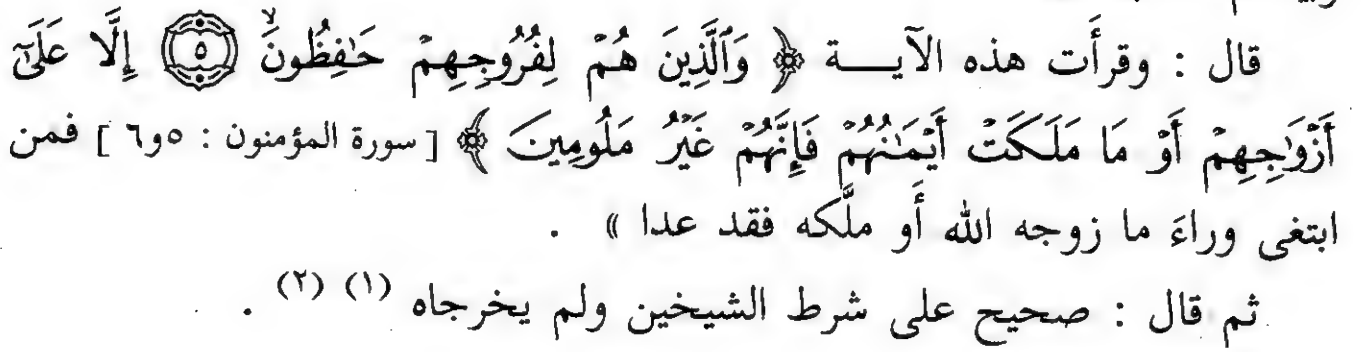 قال : وقرأَت هذه الآيـــة ﴿ وَٱلَّذِينَ هُمْ لِفُرُوجِهِمْ حَٰفِظُونَ ۝٥ إِلَّا عَلَىٰٓ
أَزْوَٰجِهِمْ أَوْ مَا مَلَكَتْ أَيْمَٰنُهُمْ فَإِنَّهُمْ غَيْرُ مَلُومِينَ ﴾ [ سورة المؤمنون : ٥و٦ ] فمن
ابتغى وراءَ ما زوجه الله أَو ملَّكه فقد عدا » .
ثم قال : صحيح على شرط الشيخين ولم يخرجاه (١) (٢) .